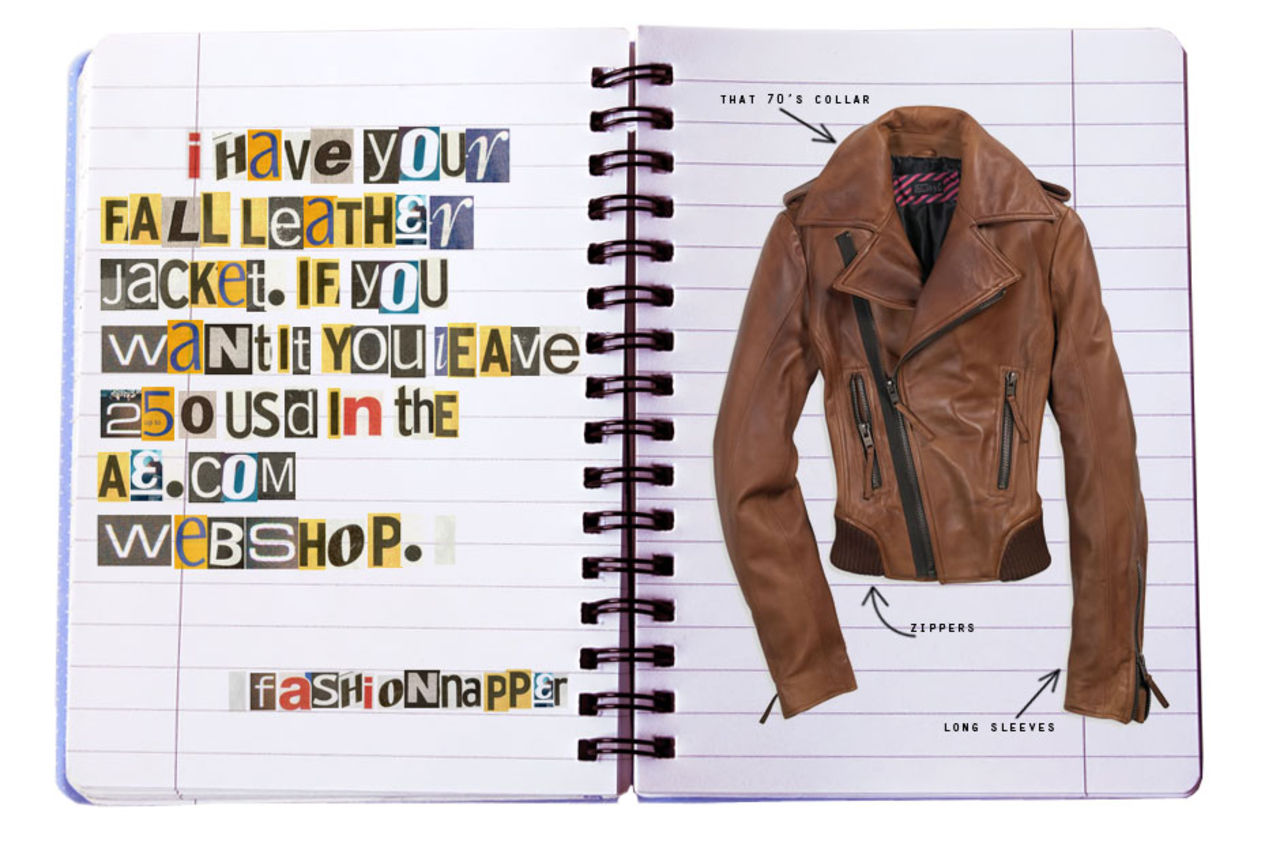 i Have yOUr
FALL LeATHer
JaCKet. IF yOU
waNtIt YOU lEAve
25o USd In thE
Ae.COM
weBSHOP.
faSHioNnaPPer
THAT 70'S COLLAR
ZIPPERS
LONG SLEEVES